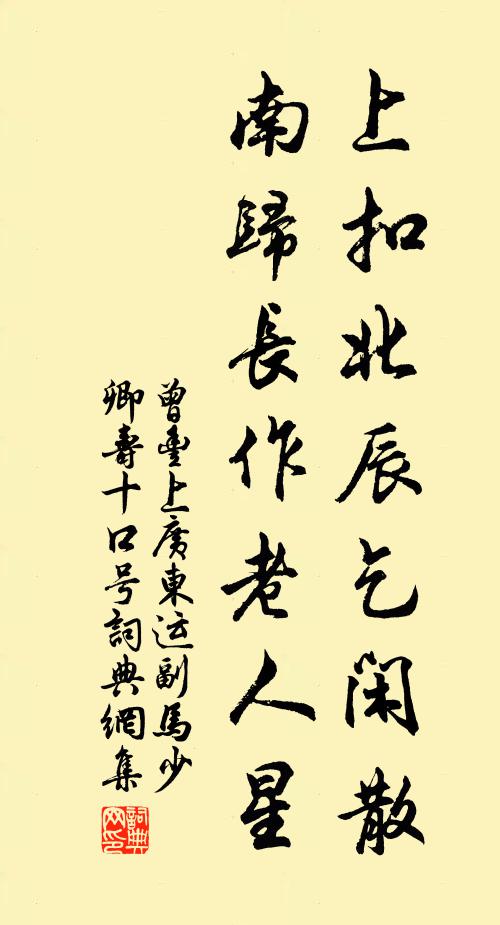 上扣北辰乞闲散
南歸長作老人星
曾豐上廣東运副馬少
卿壽十口号詞典網集
詞典网印